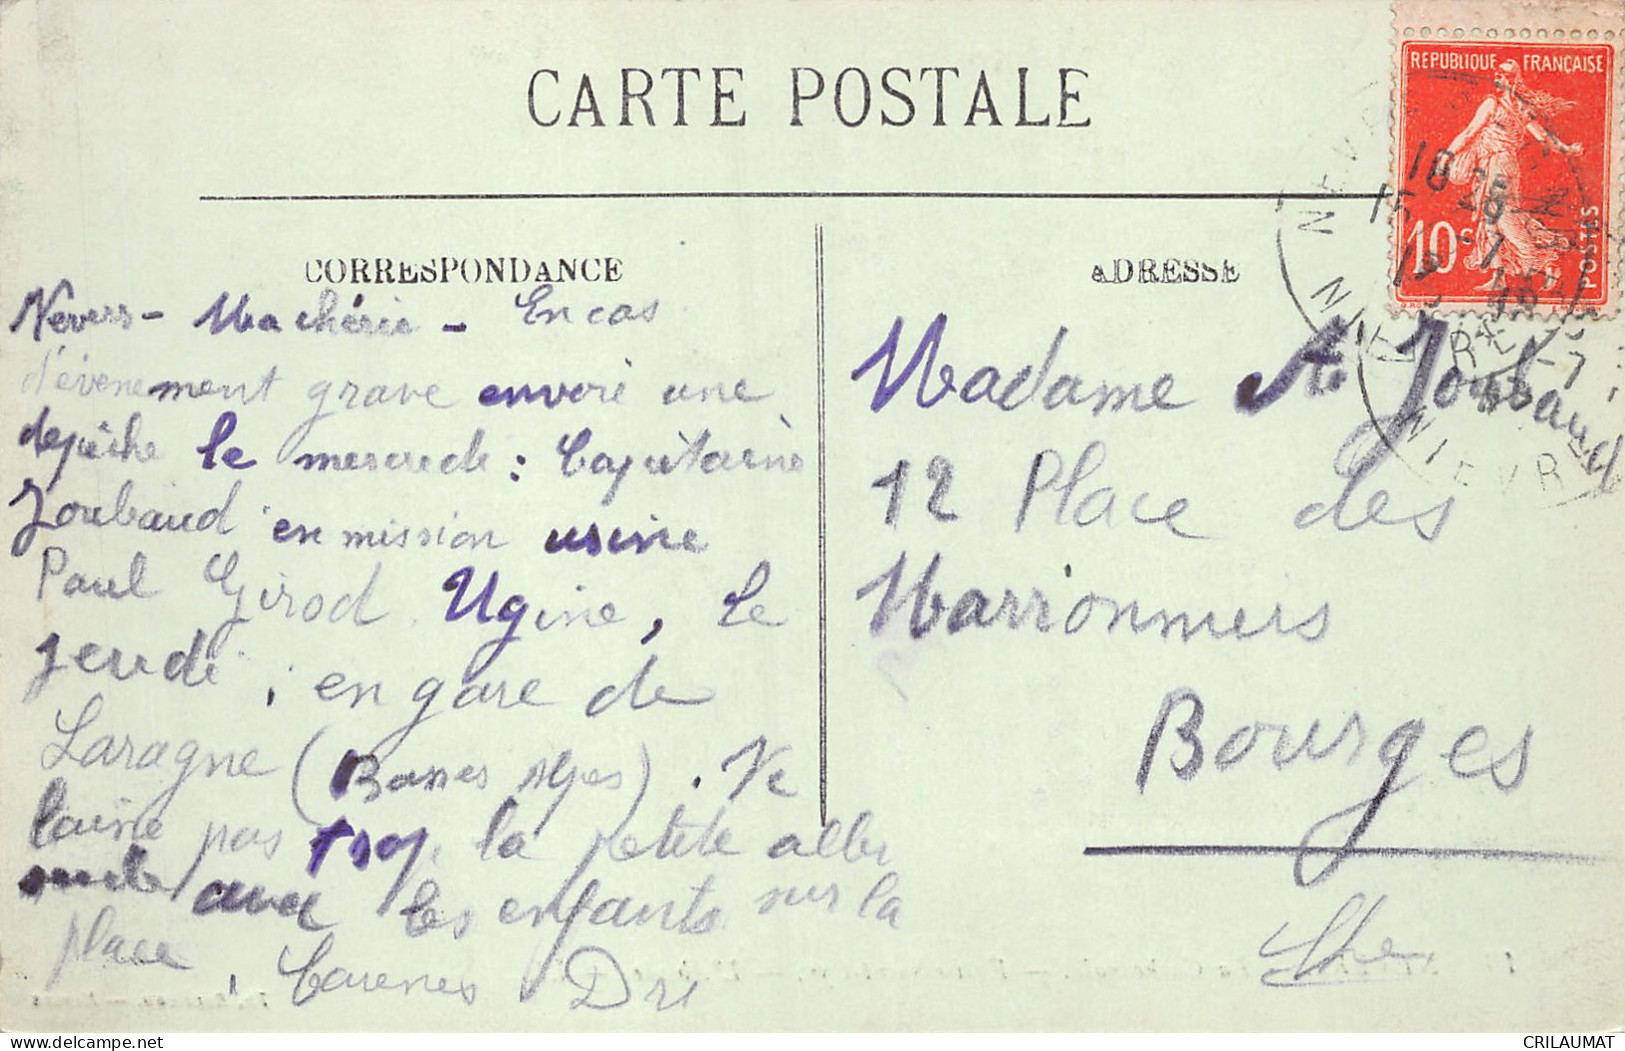 CARTE POSTALE
REPUBLIQUE FRANÇAISE
10c
POSTES
CORRESPONDANCE
Nevers - Ma chérie - En cas
d'évenement grave envoie une
depêche le mercredi : Capitaine
Joubaud en mission usine
Paul Girod Ugine, le
jeudi, en gare de
Laragne (Basses Alpes). Ne
laisse pas trop la petite aller
seule avec les enfants sur la
place,
ADRESSE
Madame A Joubaud
12 Place des
Marronniers
Bourges
Cher
NEVERS
NIEVRE
CRILAUMAT